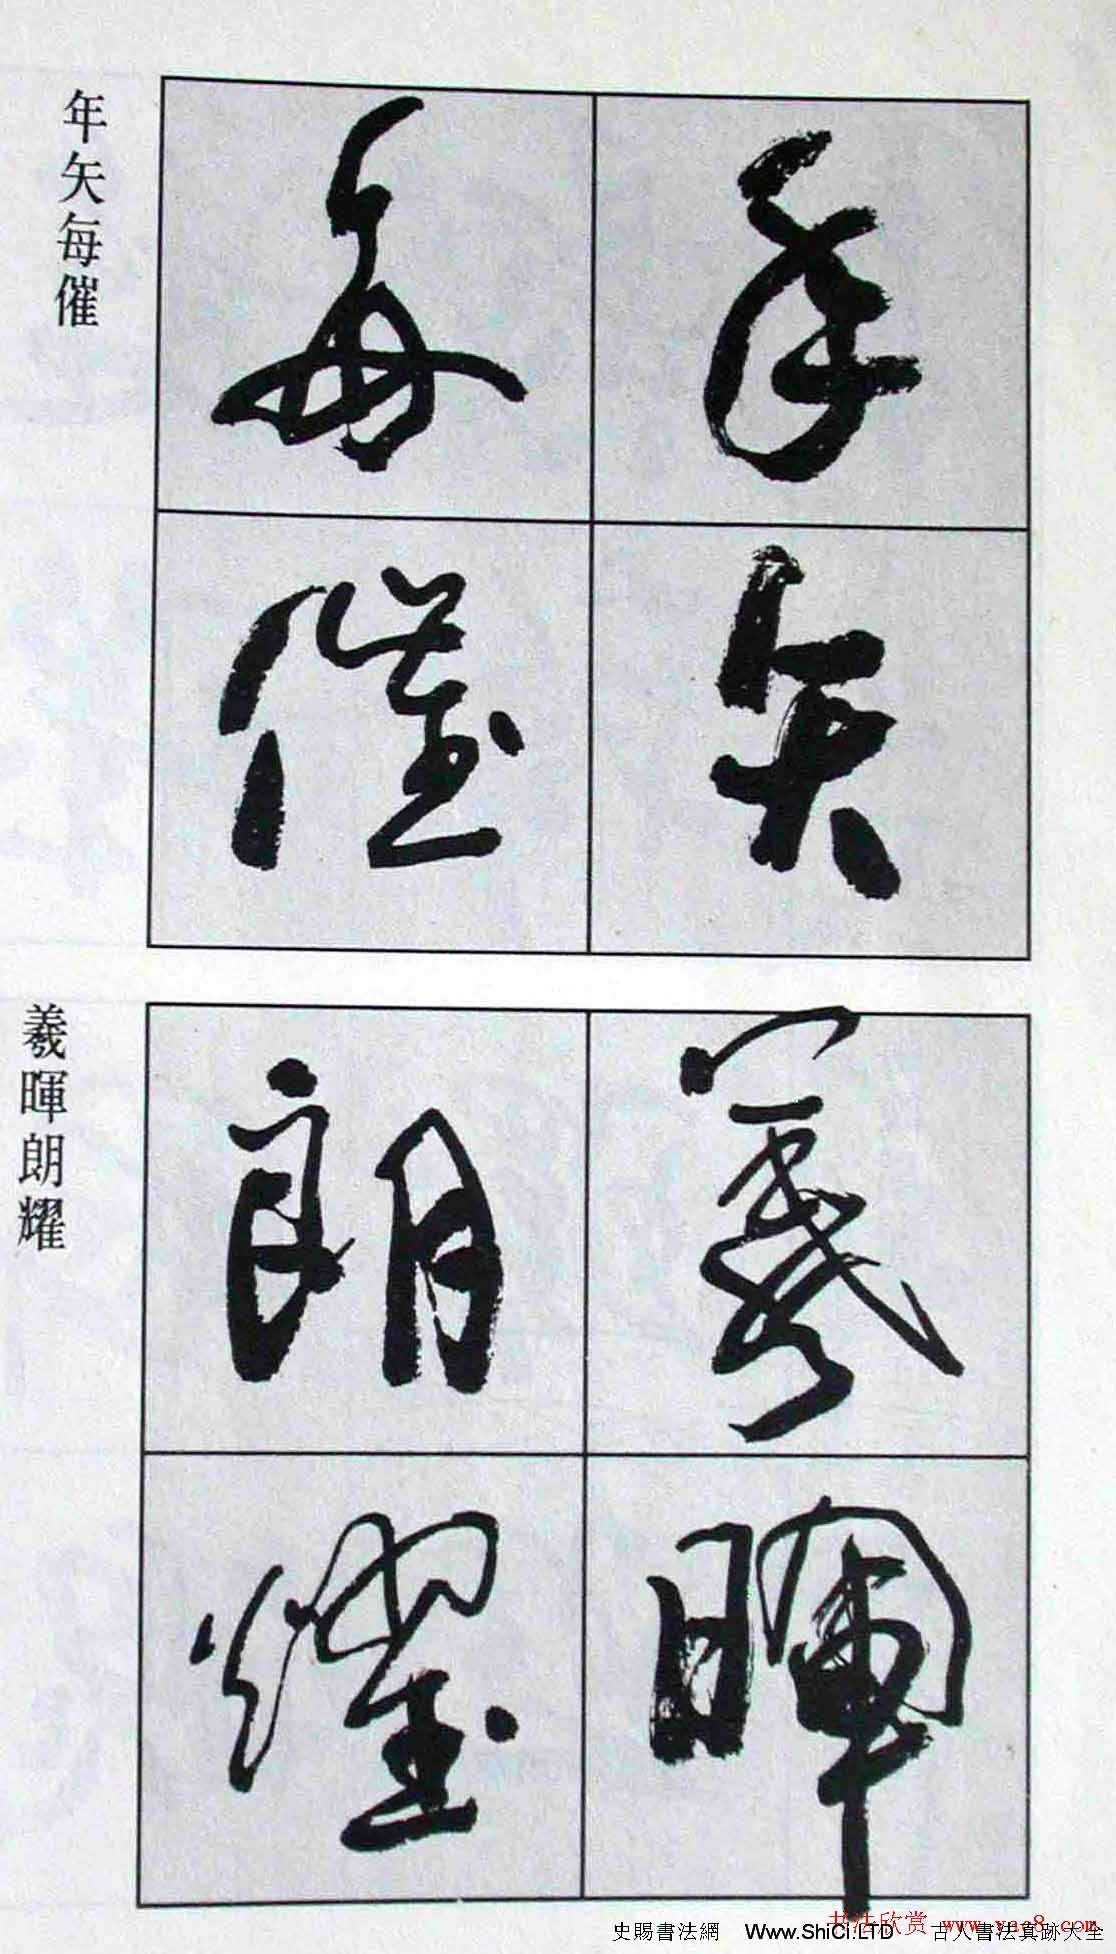 年矢每催
年矢
每催
羲暉朗耀
羲暉
朗耀
书法欣赏 www.yac8.com
史賜書法網 Www.ShiCi.LTD 古人書法真跡大全